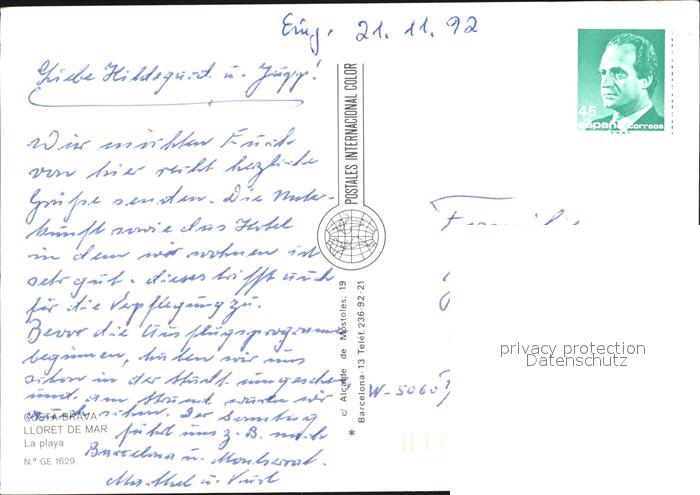 Eing. 21.11.92
Liebe Hildegard u. Jupp!
Wir möchten Euch
von hier recht herzliche
Grüße senden. Die Unter-
kunft sowie das Hotel
in dem wir wohnen ist
sehr gut. dieses trifft auch
für die Verpflegung zu.
Bevor die Ausflugsprogramme
beginnen, haben wir uns
schon in der Stadt umgesehen
und am Strand waren wir
auch schon. Der Samstag
führt uns z. B. nach
Barcelona u. Montserrat.
COSTA BRAVA
LLORET DE MAR
La playa
N.º GE 1629
POSTALES INTERNACIONAL COLOR
c/ Alcalde de Móstoles, 19
Barcelona-13 Teléf. 236-92-21
45
españa correos
Familie
W-5060
privacy protection
Datenschutz